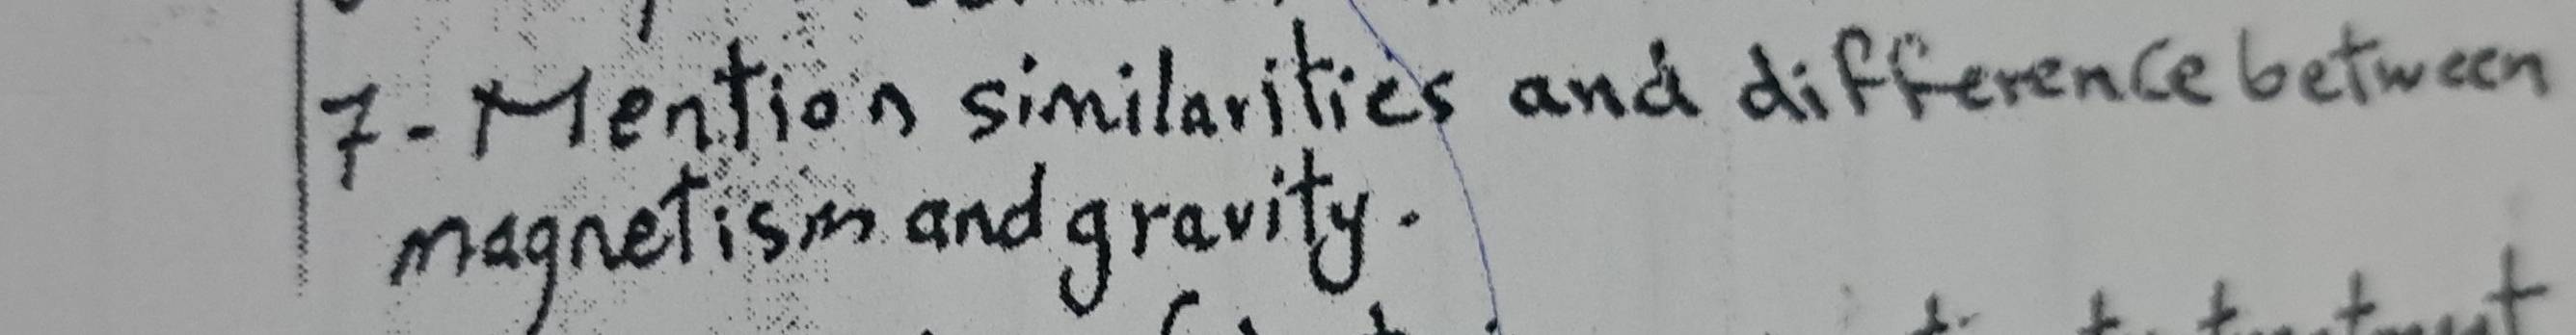 7- Mention similarities and difference between
magnetism and gravity.